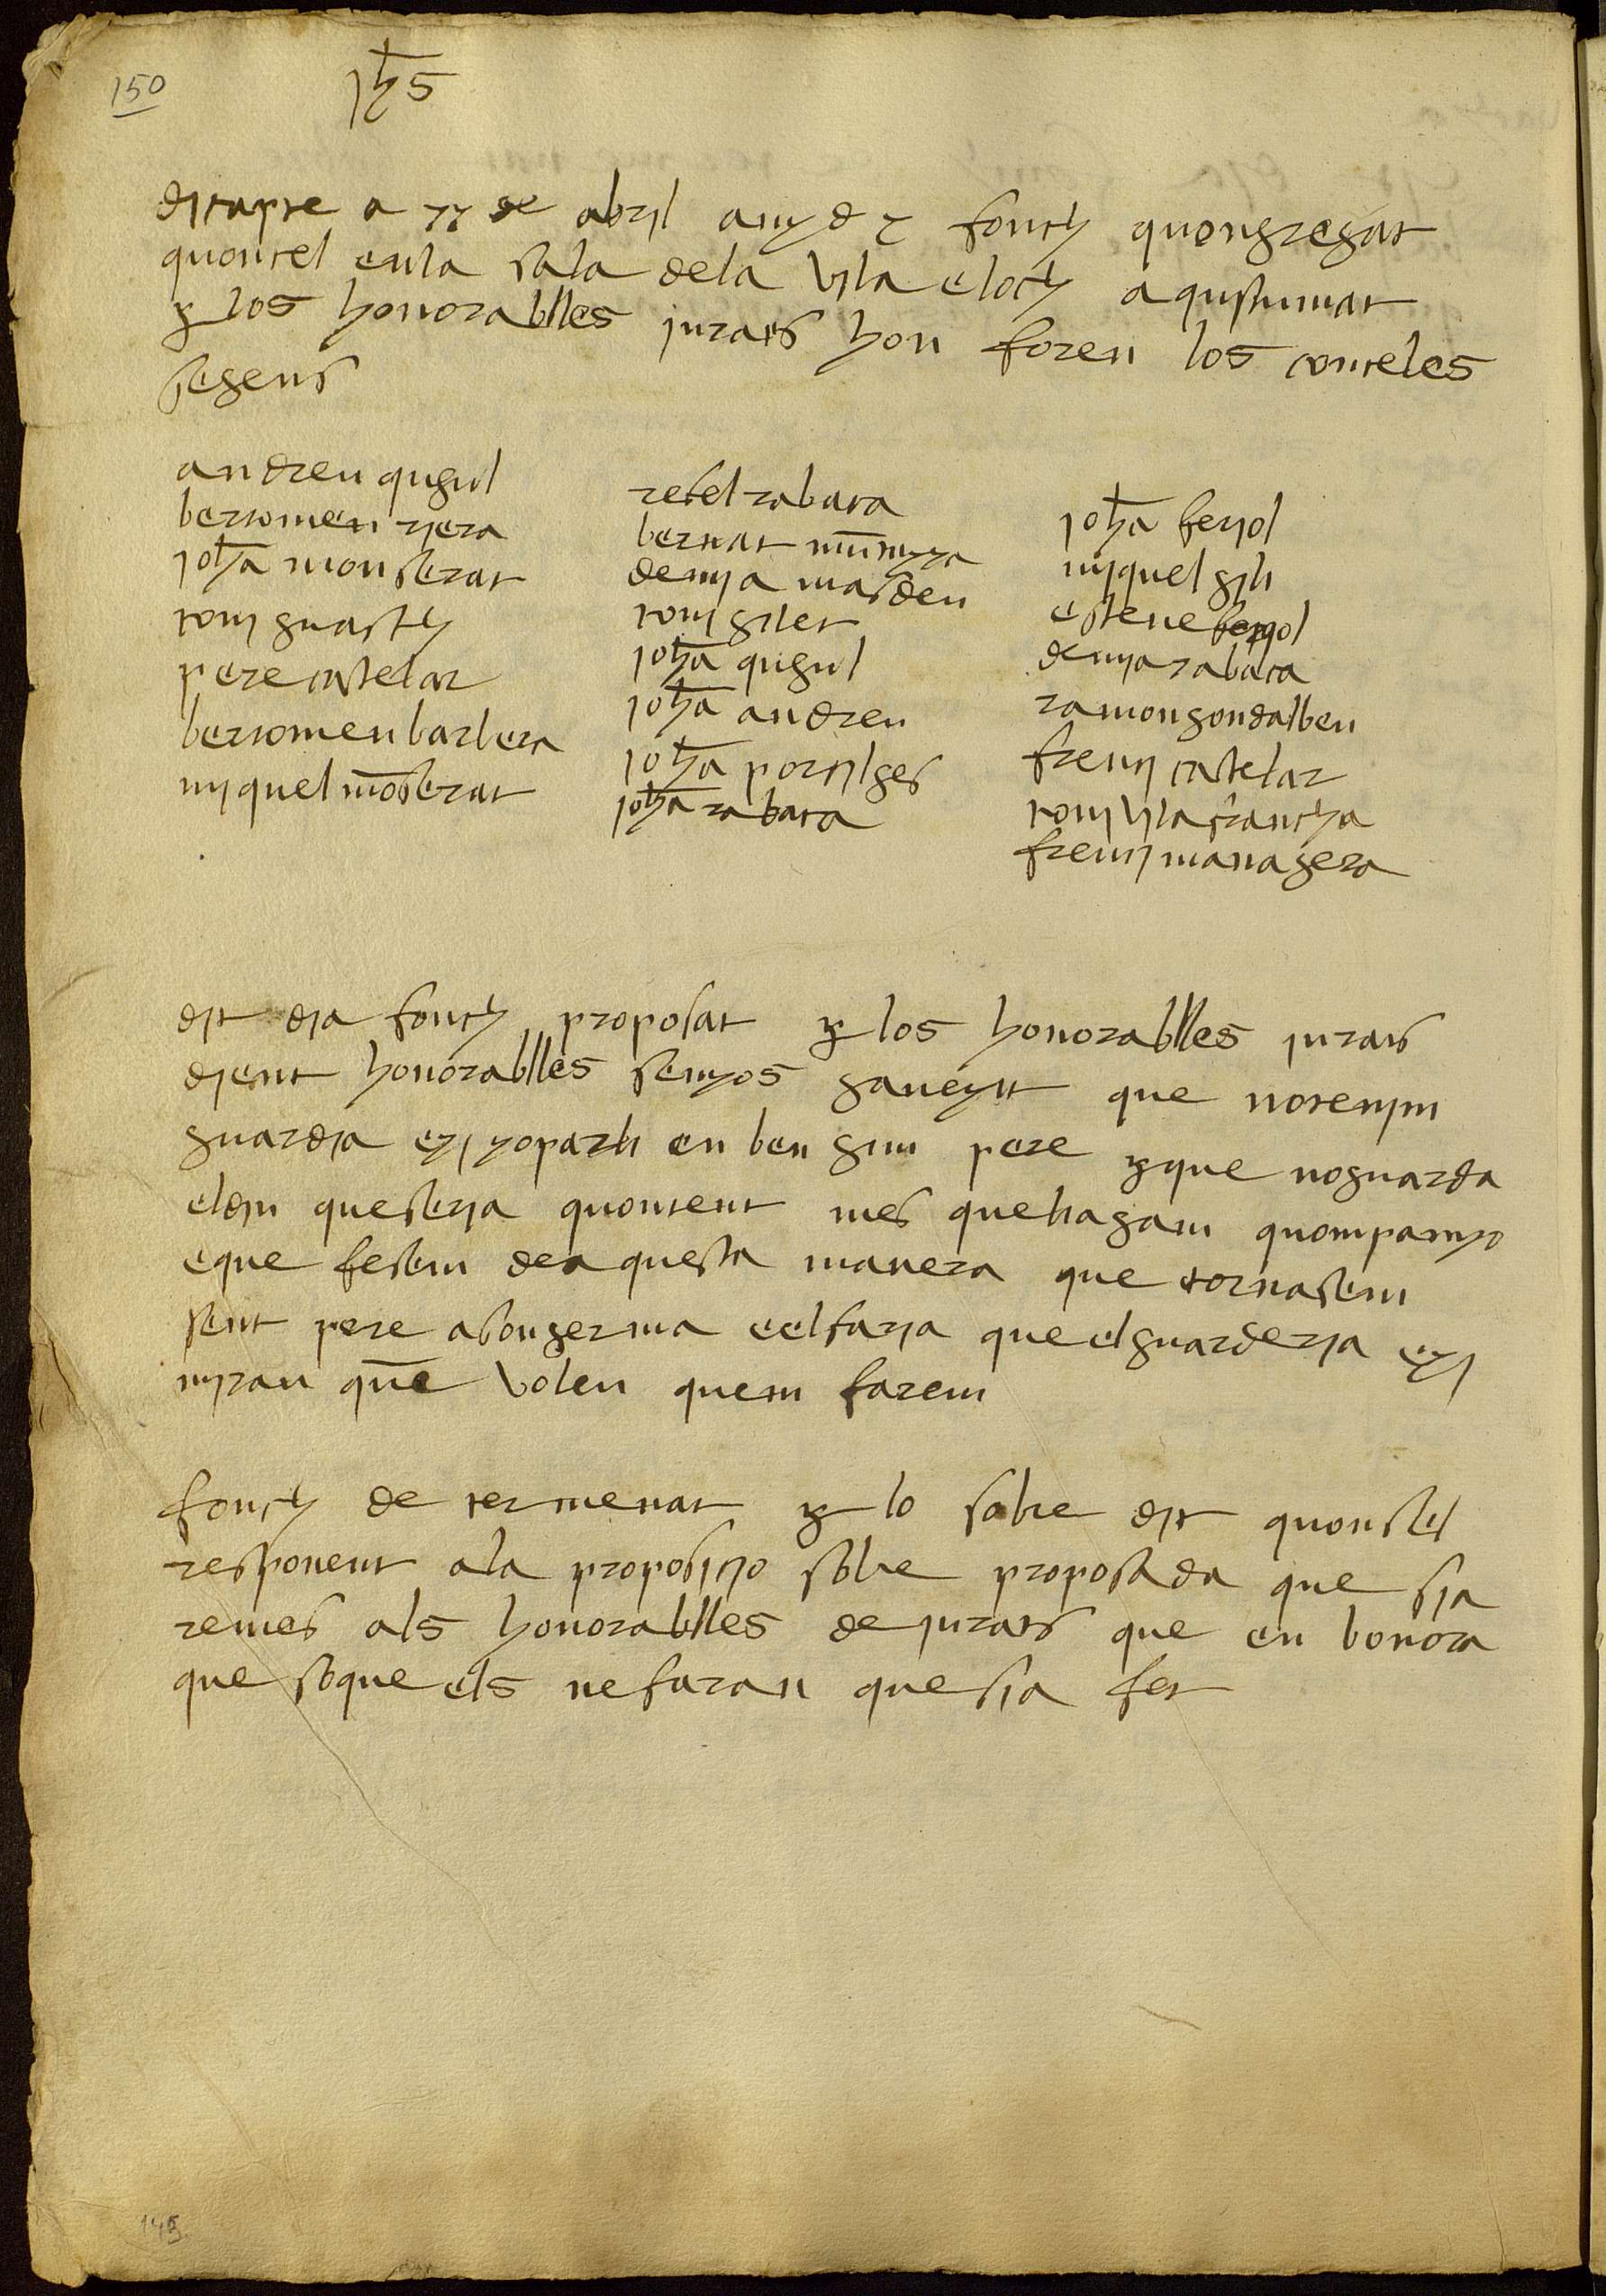 150
jhs
disapte a 77 de abril any d 7 fonch quongregat
quoncel en la sala de la vila e loch aqustumat
per los honorablles jurats hon foren los conceles
segens
andreu qugul
bertomeu riera
joha monserat
toni guasch
pere castelar
bertomeu barbera
miquel moserat
refel rabasa
bernat
demia masdeu
toni gilet
joha qugul
joha andreu
joha porsilges
joha rabasa
joha feriol
miquel gili
esteve feriol
demia rabasa
ramon gondalbeu
freni castelar
toni vilafrancha
freni managera
dit dia fonch proposat per los honorablles jurats
dient honorablles senyos ga veyn que no tenim
guardia e yo parli en ben gim pere per que no guarda
el diu que seria quontent mes que li agam quompanyo
e que fesem de aquesta manera que tornasem
sent pere a son germa e el faria que el guarderia e
miran que volen quem farem
fonch determenat per lo sobre dit quonsel
responent a la proposicio sobre proposada que sia
remes als honorablles de jurats que en bonora
que so que els ne faran que sia fet
149